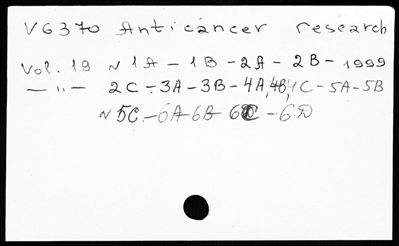 V6370 Anticancer research
Vol. 19 N 1A - 1B - 2A - 2B - 1999
— " — 2C - 3A - 3B - 4A, 4B, 4C - 5A - 5B
N 5C - 6A - 6B 6C - 6D